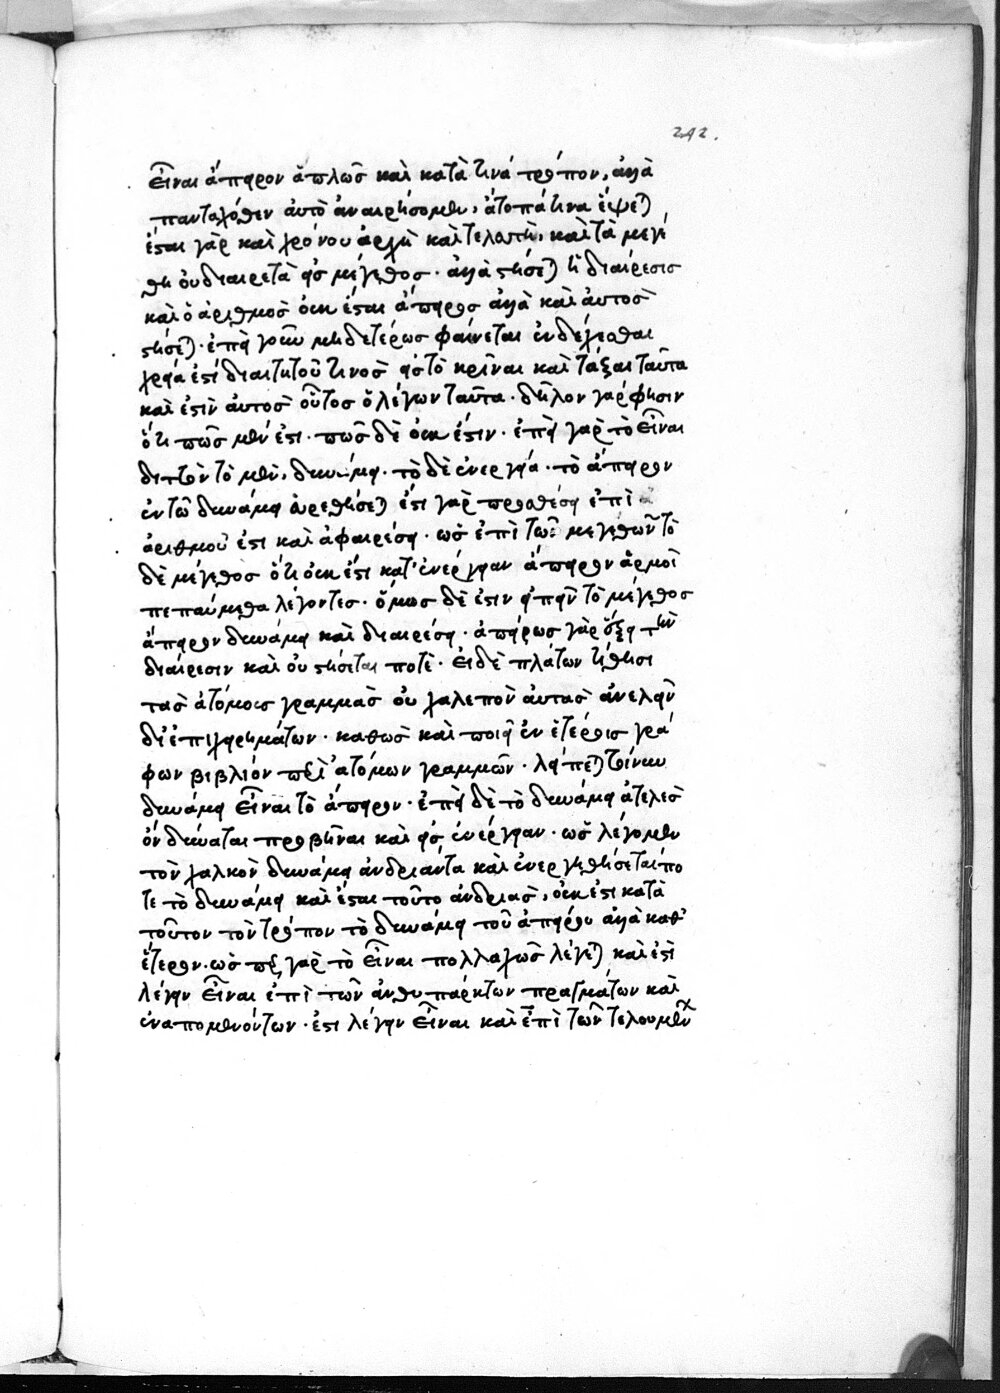 242.
εἶναι ἄπειρον ἁπλῶς καὶ κατά τινα τρόπον, ἀλλὰ
πανταχόθεν αὐτὸ ἀναιρήσομεν, ἄτοπά τινα ἕψεται
ἔσται γὰρ καὶ χρόνου ἀρχὴ καὶ τελευτὴ, καὶ τὰ μεγέ
θη οὐ διαιρετὰ εἰς μέγεθος · ἀλλὰ στήσεται ἡ διαίρεσις
καὶ ὁ ἀριθμὸς οὐκ ἔσται ἄπειρος ἀλλὰ καὶ αὐτὸς
στήσεται · ἐπεὶ γοῦν μηδετέρως φαίνεται ἐνδέχεσθαι
χρεία ἐστὶ διαιτητοῦ τινος εἰς τὸ κρῖναι καὶ τάξαι ταῦτα
καὶ ἐστὶν αὐτὸς οὗτος ὁ λέγων ταῦτα · δῆλον γάρ φησιν
ὅτι πῶς μέν ἐστι · πῶς δὲ οὐκ ἔστιν · ἐπεὶ γὰρ τὸ εἶναι
διττὸν τὸ μὲν, δυνάμει · τὸ δὲ ἐνεργείᾳ · τὸ ἄπειρον
ἐν τῷ δυνάμει εὑρεθήσεται ἔστι γὰρ προσθέσει ἐπὶ
ἀριθμοῦ ἔστι καὶ ἀφαιρέσει · ὡς ἐπὶ τῶν μεγεθῶν τὸ
δὲ μέγεθος ὅτι οὐκ ἔστι κατ' ἐνέργειαν ἄπειρον ἁρμοῖ
πεπαύμεθα λέγοντες · ὅμως δὲ ἐστὶν εἰπεῖν τὸ μέγεθος
ἄπειρον δυνάμει καὶ διαιρέσει · ἀπείρως γὰρ δέξει τὴν
διαίρεσιν καὶ οὐ στήσεται ποτὲ · εἰ δὲ πλάτων τίθησι
τὰς ἀτόμους γραμμὰς οὐ χαλεπὸν αὐτὰς ἀνελεῖν
δι' ἐπιχειρημάτων · καθὼς καὶ ποιεῖ ἐν ἑτέροις γρά
φων βιβλίον περὶ ἀτόμων γραμμῶν · λείπεται τοίνυν
δυνάμει εἶναι τὸ ἄπειρον · ἐπεὶ δὲ τὸ δυνάμει ἀτελὲς
ὂν δύναται προβῆναι καὶ εἰς ἐνέργειαν · ὡς λέγομεν
τὸν χαλκὸν δυνάμει ἀνδριάντα καὶ ἐνεργηθήσεταί πο
τε τὸ δυνάμει καὶ ἔσται τοῦτο ἀνδριὰς, οὐκ ἔστι κατὰ
τοῦτον τὸν τρόπον τὸ δυνάμει τοῦ ἀπείρου ἀλλὰ καθ'
ἕτερον · ὥσπερ γὰρ τὸ εἶναι πολλαχῶς λέγεται καὶ ἔστι
λέγειν εἶναι ἐπὶ τῶν ἀνθυπάρκτων πραγμάτων καὶ
ἐναπομενόντων · ἔστι λέγειν εἶναι καὶ ἐπὶ τῶν τελουμένων